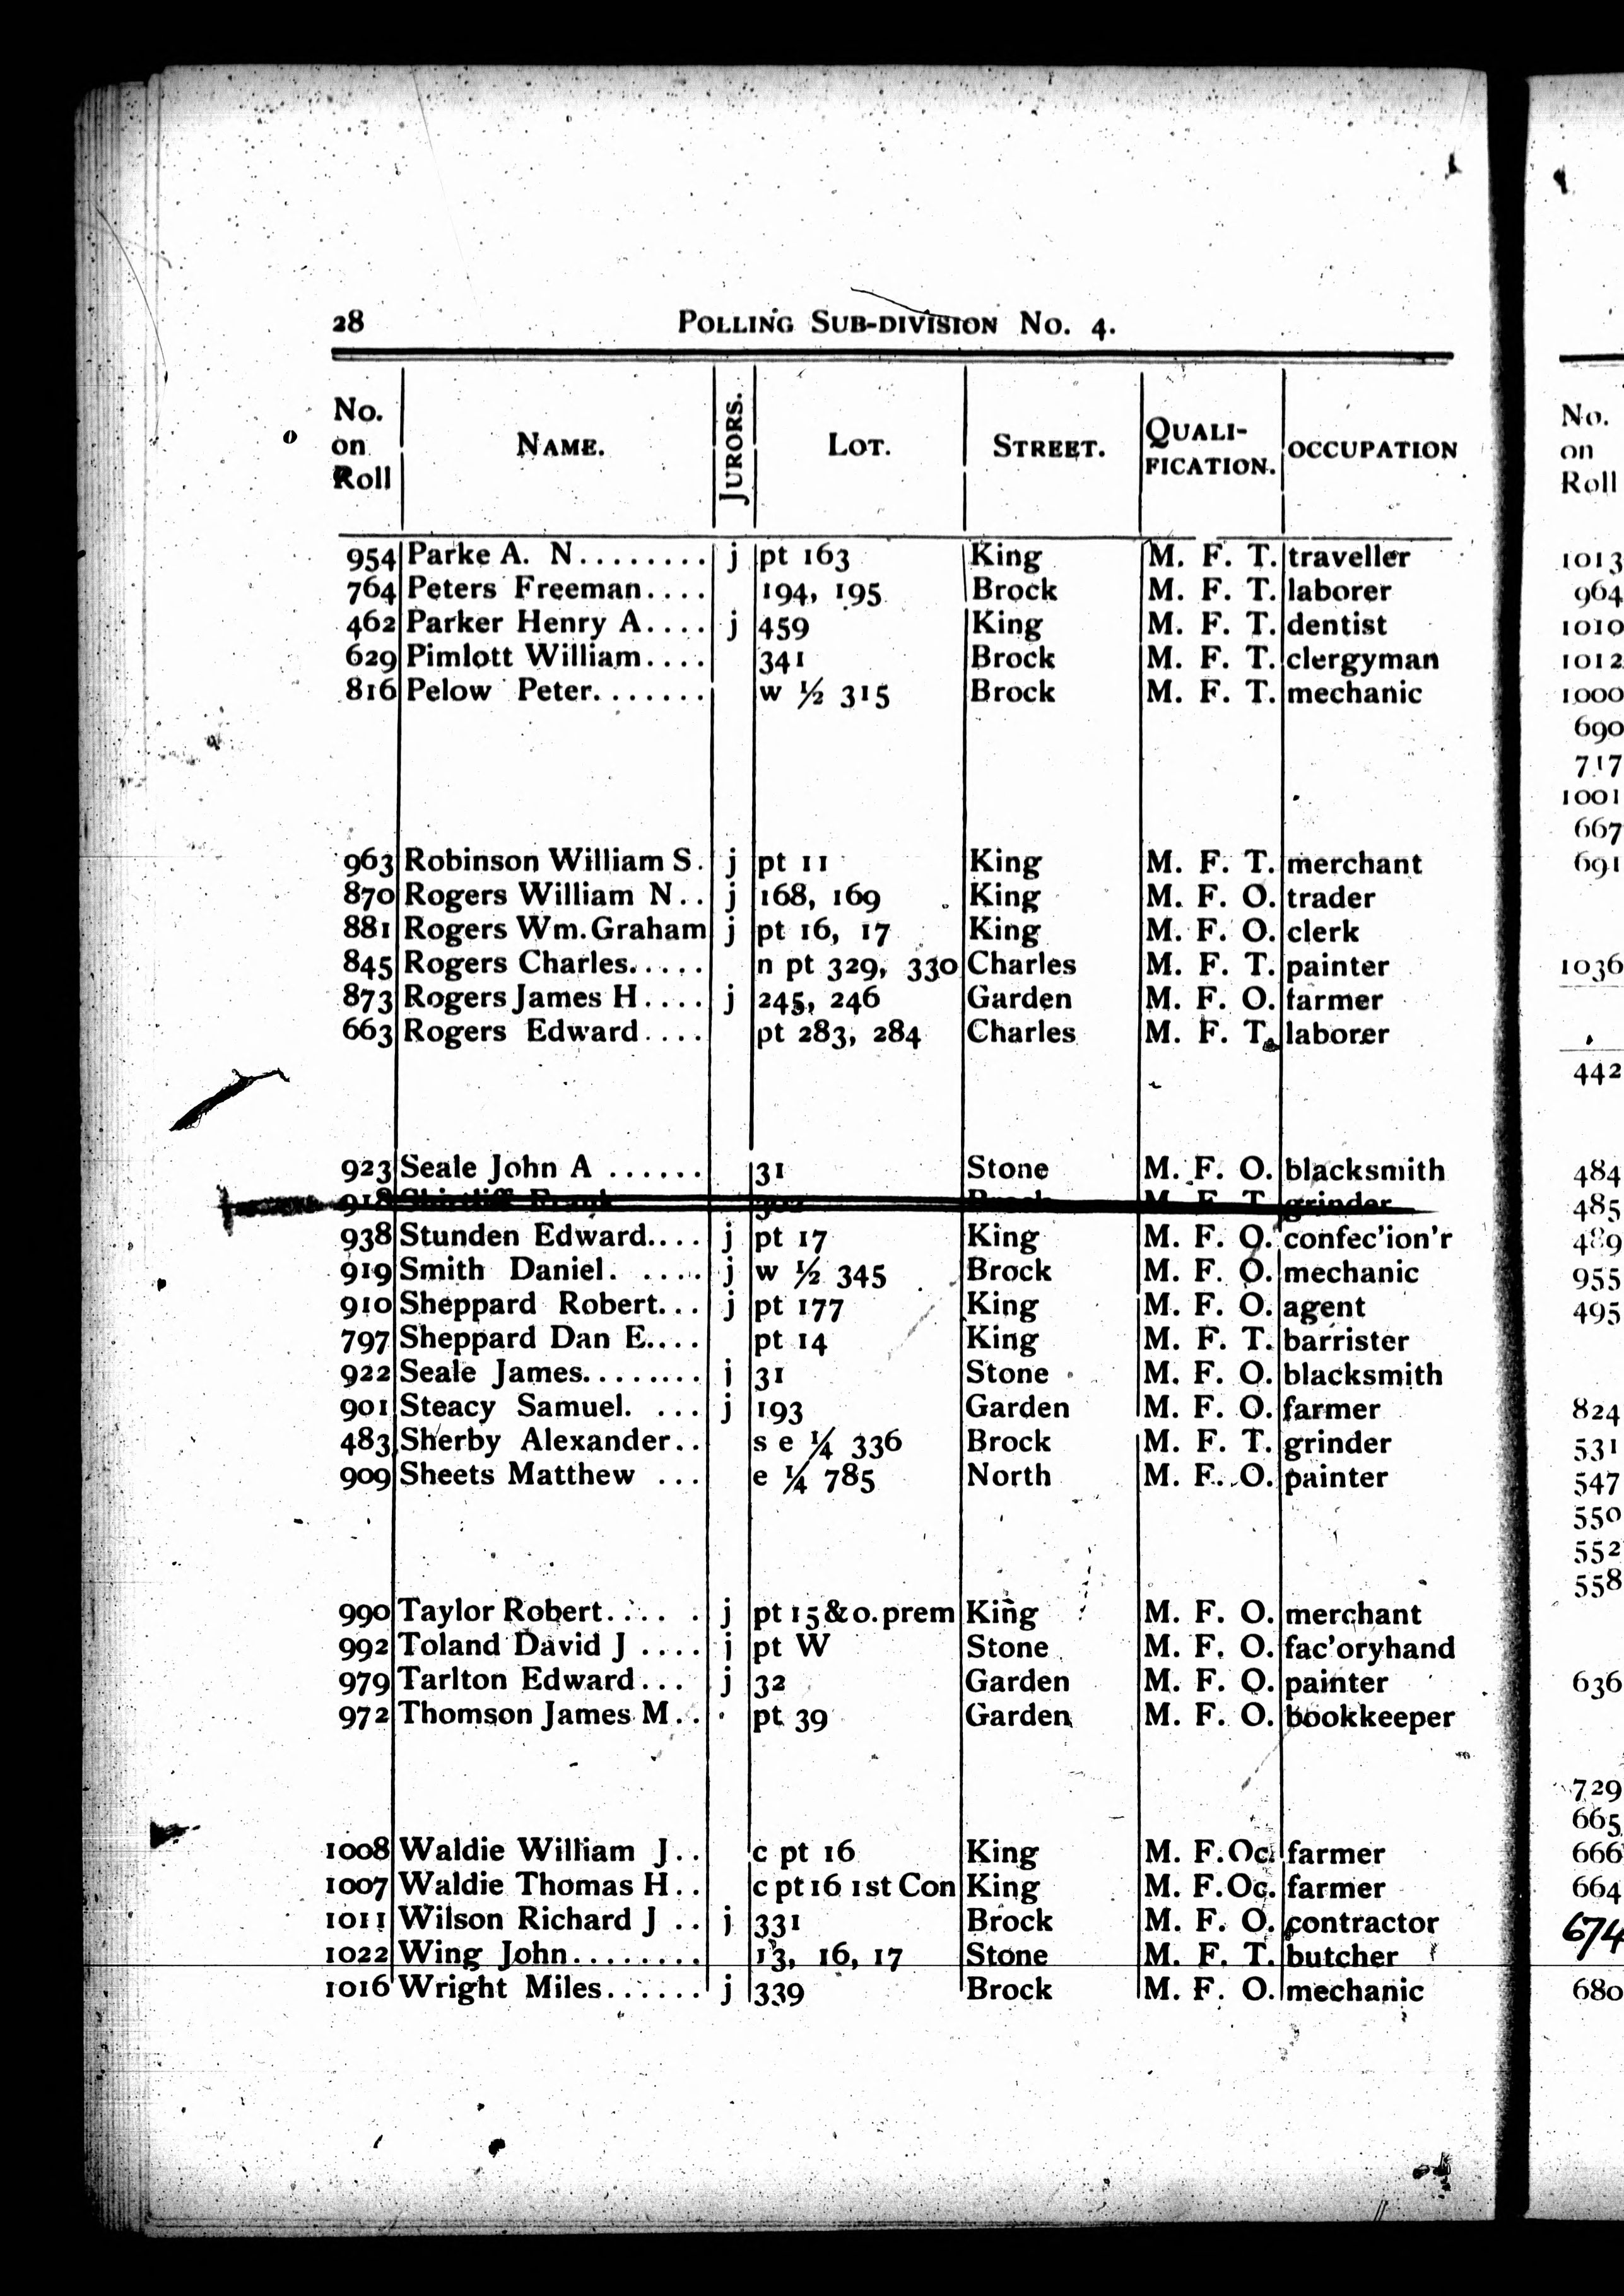 28 POLLING SUB-DIVISION No. 4.
No. on Roll NAME. JURORS. LOT. STREET. QUALI-FICATION. OCCUPATION
954 Parke A. N........ j pt 163 King M. F. T. traveller
764 Peters Freeman.... 194, 195 Brock M. F. T. laborer
462 Parker Henry A.... j 459 King M. F. T. dentist
629 Pimlott William.... 341 Brock M. F. T. clergyman
816 Pelow Peter....... w ½ 315 Brock M. F. T. mechanic
963 Robinson William S. j pt 11 King M. F. T. merchant
870 Rogers William N.. j 168, 169 King M. F. O. trader
881 Rogers Wm. Graham j pt 16, 17 King M. F. O. clerk
845 Rogers Charles..... n pt 329, 330 Charles M. F. T. painter
873 Rogers James H.... j 245, 246 Garden M. F. O. farmer
663 Rogers Edward.... pt 283, 284 Charles M. F. T. laborer
923 Seale John A ...... 31 Stone M. F. O. blacksmith
918 Frank Brock M. F. T. grinder
938 Stunden Edward.... j pt 17 King M. F. O. confec'ion'r
919 Smith Daniel. .... j w ½ 345 Brock M. F. O. mechanic
910 Sheppard Robert... j pt 177 King M. F. O. agent
797 Sheppard Dan E.... pt 14 King M. F. T. barrister
922 Seale James........ j 31 Stone M. F. O. blacksmith
901 Steacy Samuel. ... j 193 Garden M. F. O. farmer
483 Sherby Alexander.. s e ¼ 336 Brock M. F. T. grinder
909 Sheets Matthew ... e ¼ 785 North M. F. O. painter
990 Taylor Robert.... . j pt 15 & o. prem King M. F. O. merchant
992 Toland David J .... j pt W Stone M. F. O. fac'oryhand
979 Tarlton Edward... j 32 Garden M. F. O. painter
972 Thomson James M.. pt 39 Garden M. F. O. bookkeeper
1008 Waldie William J.. c pt 16 King M. F. Oc. farmer
1007 Waldie Thomas H.. c pt 16 1st Con King M. F. Oc. farmer
1011 Wilson Richard J .. j 331 Brock M. F. O. contractor
1022 Wing John........ 13, 16, 17 Stone M. F. T. butcher
1016 Wright Miles...... j 339 Brock M. F. O. mechanic
No.
on
Roll
1013
964
1010
1012
1000
690
717
1001
667
691
1036
442
484
485
489
955
495
824
531
547
550
552
558
636
729
665
666
664
674
680